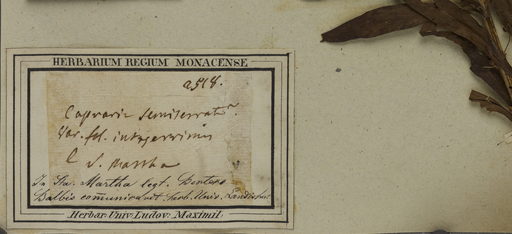 HERBARIUM REGIUM MONACENSE
2518.
Capraria semiserrata
Var. fol. integerrimis
S. Martha
In Sta. Martha legt. Bertero
Balbis communicavit. Herb. Univ. Landishut
Herbar. Univ. Ludov. Maximil.